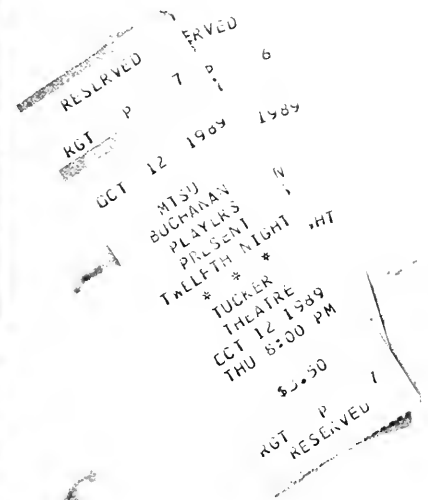 RESERVED ERVED
RGT P 7 P 6
OCT 12 1989 1989
MTSU
BUCHANAN N
PLAYERS
PRESENT
TWELFTH NIGHT HT
* * *
TUCKER
THEATRE
OCT 12 1989
THU 8:00 PM
RGT P 7
RESERVED